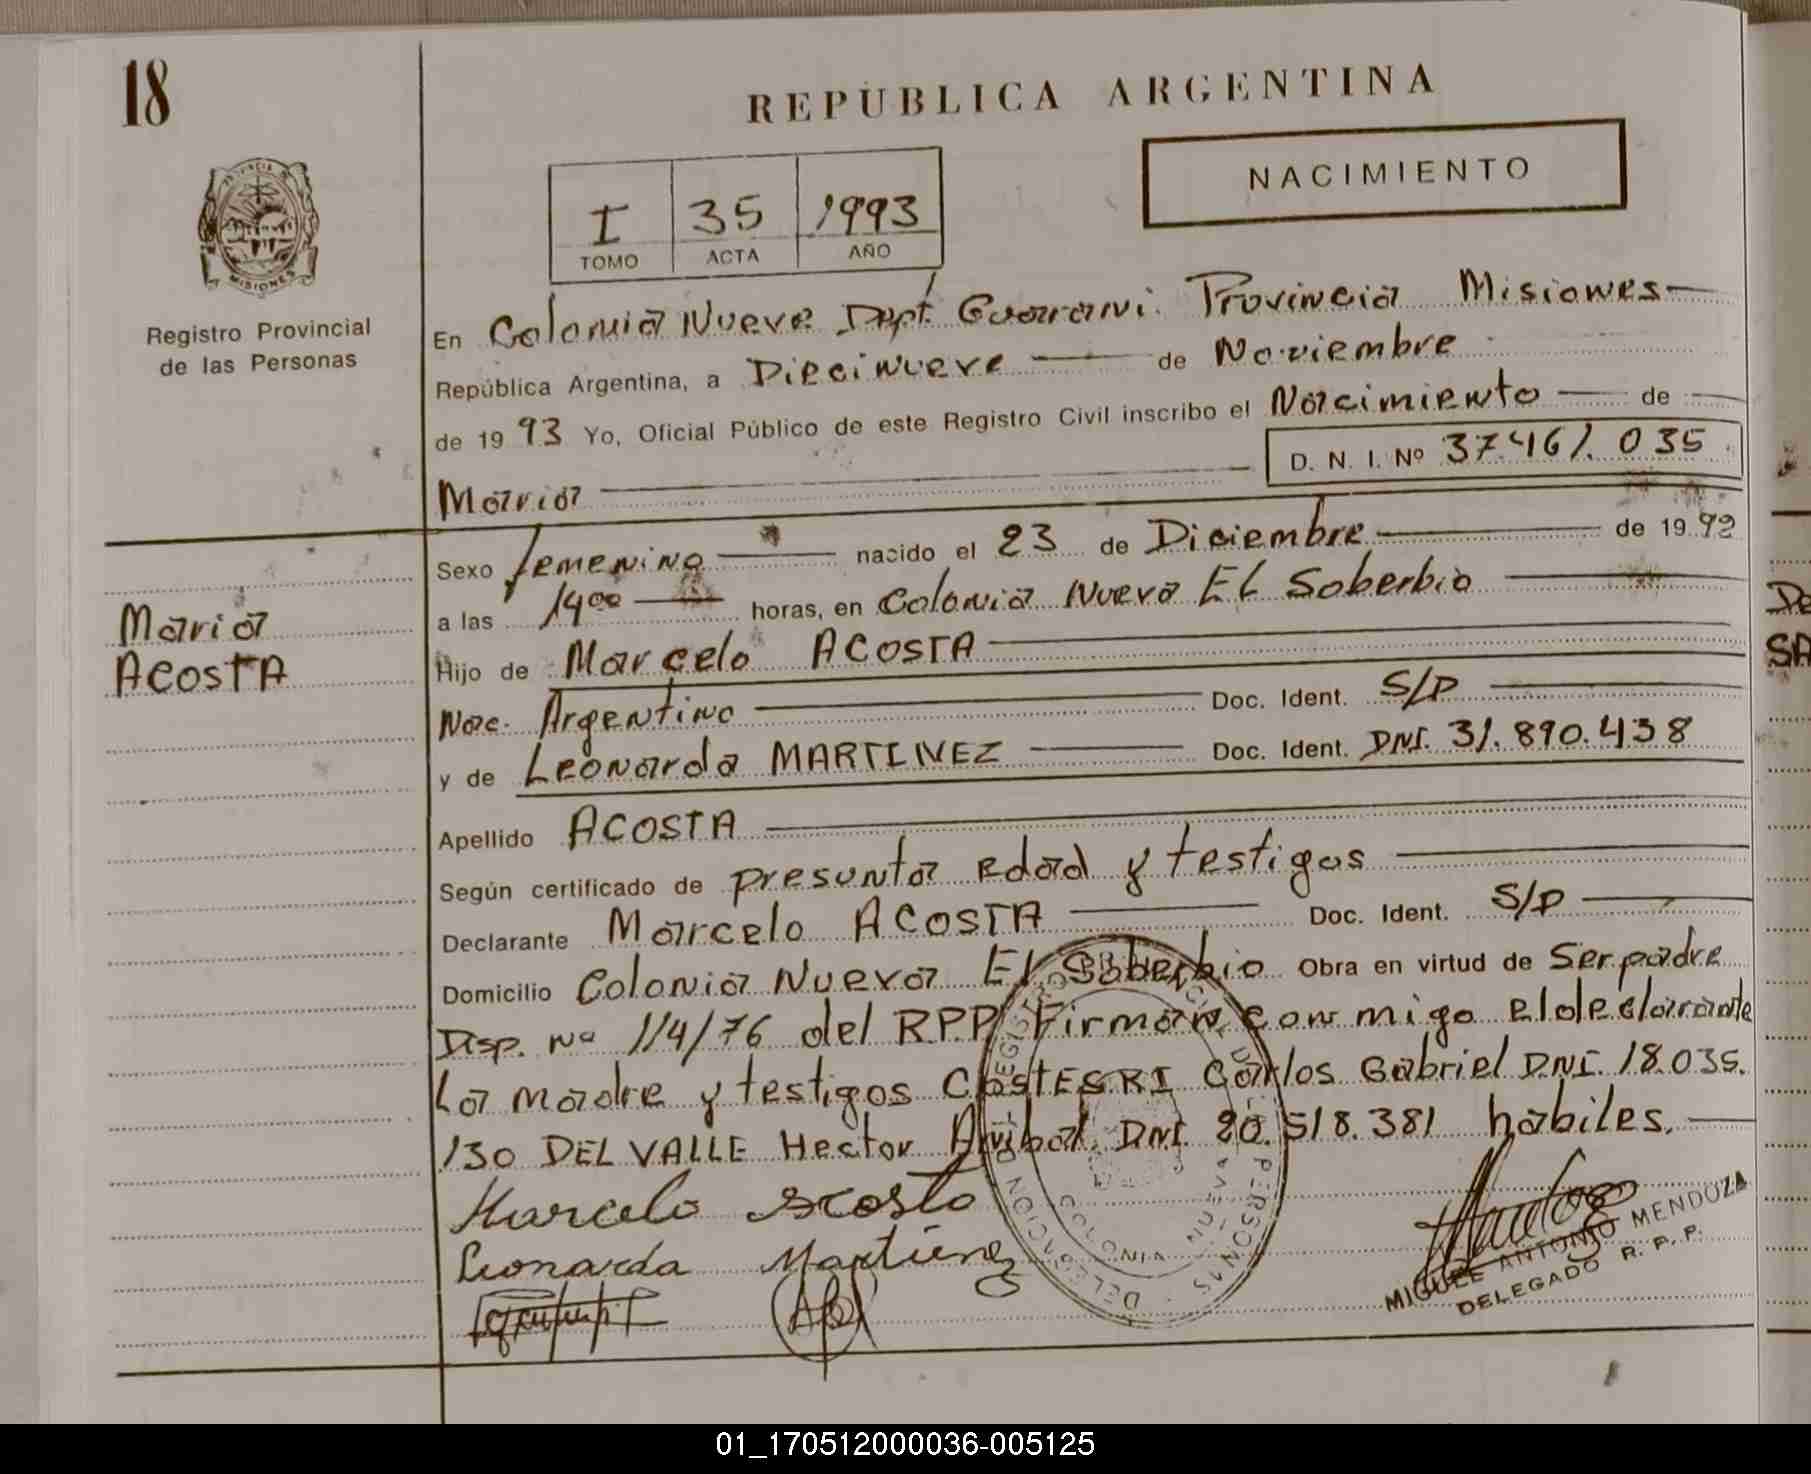 18
REPÚBLICA ARGENTINA
NACIMIENTO
I 35 1993
TOMO ACTA AÑO
PROVINCIA DE
MISIONES
Registro Provincial
de las Personas
En Colonia Nueve Dept. Guarani. Provincia Misiones
República Argentina, a Diecinueve de Noviembre
de 19 93 Yo, Oficial Público de este Registro Civil inscribo el Nacimiento de
D. N. I. Nº 37.461.035
Maria
Sexo femenino nacido el 23 de Diciembre de 19 92
a las 14oo horas, en Colonia Nueva El Soberbio
Maria
ACOSTA
Hijo de Marcelo ACOSTA
Nac. Argentino Doc. Ident. S/D
y de Leonarda MARTINEZ Doc. Ident. DNI. 31.890.438
Apellido ACOSTA
Según certificado de presunta edad y testigos
Declarante Marcelo ACOSTA Doc. Ident. S/D
Domicilio Colonia Nueva El Soberbio Obra en virtud de Ser padre
Disp. Nº 114/76 del RPP Firman con migo el declarante
La madre y testigos Carlos Gabriel DNI. 18.035.
130 DEL VALLE Hector Anibal DNI. 20.518.381 habiles.
Marcelo Acosta
Leonarda Martinez
MIGUEL ANTONIO MENDOZA
DELEGADO R. P. P.
01_170512000036-005125